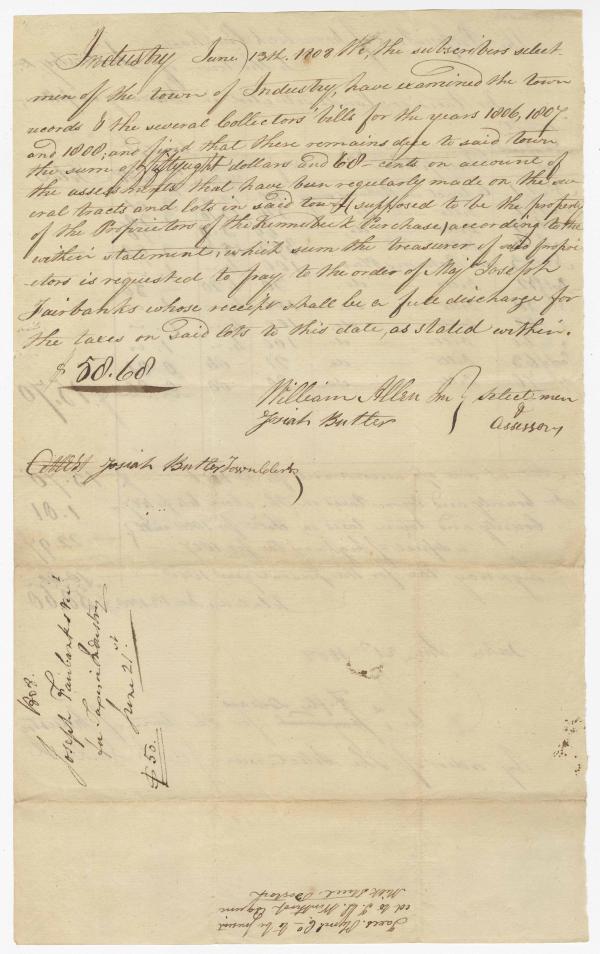 Industry June 13th. 1808 We, the subscribers select-
men of the town of Industry, have examined the town
records & the several Collectors' bills for the years 1806, 1807
and 1808, and find that there remains due to said town
the sum of fiftyeight dollars and 68- cents on account of
the assessments that have been regularly made on the sev
eral tracts and lots in said town (supposed to be the property
of the Proprietors of the Kennebeck Purchase) according to the
within statement, which sum the treasurer of said propri
etors is requested to pay to the order of Maj Joseph
Fairbanks whose receipt shall be a full discharge for
the taxes on said lots to this date, as stated within.
$ 58.68
William Allen Jnr } select men
Josiah Butler &
Assessors
Attest Josiah Butler Town Clerk
1808.
Joseph Fairbanks
for Taxes in Industry
June 21st
$ 50.
Taxes.
ed to T. L. Winthrop Esquire
Milk Street Boston